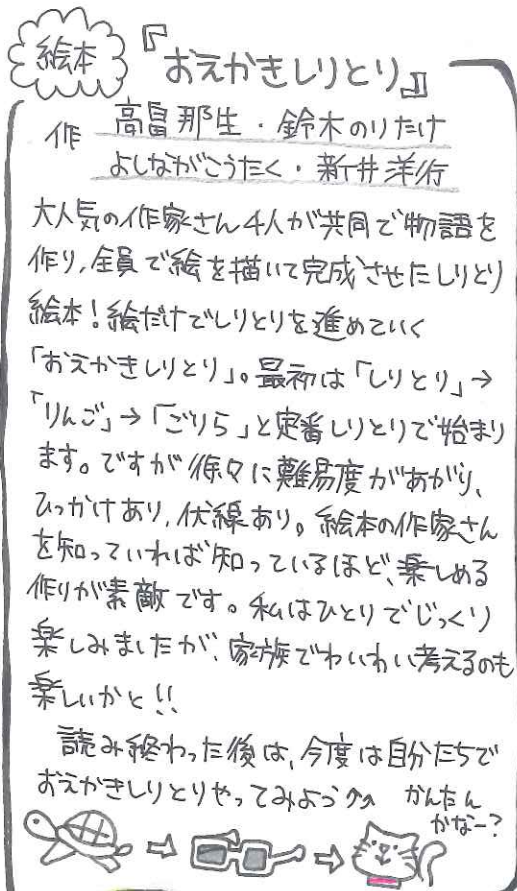 絵本
『おえかきしりとり』
作 高畠那生・鈴木のりたけ
よしながこうたく・新井洋行
大人気の作家さん4人が共同で物語を
作り、全員で絵を描いて完成させたしりとり
絵本！絵だけでしりとりを進めていく
「おえかきしりとり」。最初は「しりとり」→
「りんご」→「ごりら」と定番しりとりで始まり
ます。ですが徐々に難易度があがり、
ひっかけあり、伏線あり。絵本の作家さん
を知っていれば知っているほど、楽しめる
作りが素敵です。私はひとりでじっくり
楽しみましたが、家族でわいわい考えるのも
楽しいかと!!
読み終わった後は、今度は自分たちで
おえかきしりとりやってみよう↗↗
かんたん
かなー?